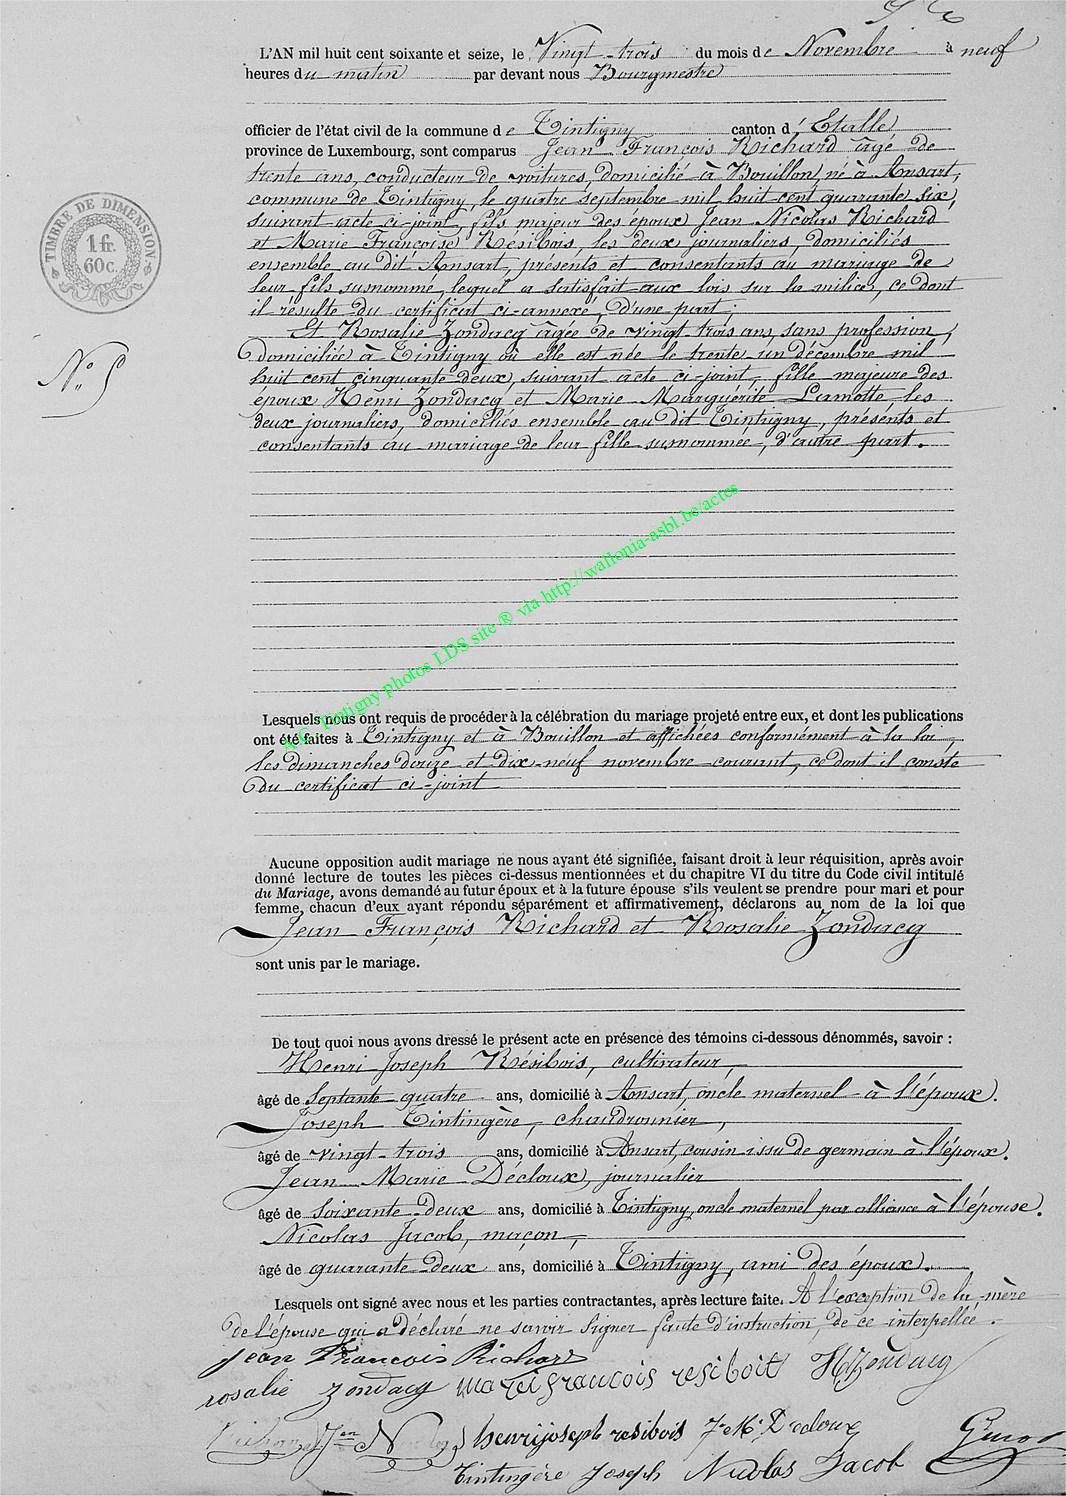 L'AN mil huit cent soixante et seize, le Vingt-trois du mois de Novembre à neuf
heures du matin par devant nous Bourgmestre
officier de l'état civil de la commune de Tintigny canton d'Etalle
province de Luxembourg, sont comparus Jean François Richard âgé de
trente ans, conducteur de voitures, domicilié à Bouillon, né à Ansart,
commune de Tintigny, le quatre septembre mil huit cent quarante six,
suivant acte ci-joint, fils majeur des époux Jean Nicolas Richard
et Marie Françoise Résibois, les deux journaliers, domiciliés
ensemble au dit Ansart, présents et consentants au mariage de
leur fils susnommé, lequel a satisfait aux lois sur la milice, ce dont
il résulte du certificat ci-annexé, d'une part;
Et Rosalie Zondacq âgée de vingt trois ans, sans profession,
domiciliée à Tintigny où elle est née le trente un décembre mil
huit cent cinquante deux, suivant acte ci-joint, fille majeure des
époux Henri Zondacq et Marie Marguérite Lamotte, les
deux journaliers, domiciliés ensemble au dit Tintigny, présents et
consentants au mariage de leur fille susnommée, d'autre part.
TIMBRE DE DIMENSION
1 fr.
60 c.
N° 5
A.C. Tintigny photos LDS site ® via http://wallonia-asbl.be/actes
Lesquels nous ont requis de procéder à la célébration du mariage projeté entre eux, et dont les publications
ont été faites à Tintigny et à Bouillon et affichées conformément à la loi,
les dimanches douze et dix-neuf novembre courant, ce dont il conste
du certificat ci-joint
Aucune opposition audit mariage ne nous ayant été signifiée, faisant droit à leur réquisition, après avoir
donné lecture de toutes les pièces ci-dessus mentionnées et du chapitre VI du titre du Code civil intitulé
du Mariage, avons demandé au futur époux et à la future épouse s'ils veulent se prendre pour mari et pour
femme, chacun d'eux ayant répondu séparément et affirmativement, déclarons au nom de la loi que
Jean François Richard et Rosalie Zondacq
sont unis par le mariage.
De tout quoi nous avons dressé le présent acte en présence des témoins ci-dessous dénommés, savoir :
Henri Joseph Résibois, cultivateur,
âgé de Septante quatre ans, domicilié à Ansart, oncle maternel à l'époux.
Joseph Tintingère, chaudronnier,
âgé de vingt-trois ans, domicilié à Ansart, cousin issu de germain à l'époux.
Jean Marie Décloux, journalier
âgé de Soixante deux ans, domicilié à Tintigny, oncle maternel par alliance à l'épouse.
Nicolas Jacob, maçon,
âgé de quarante-deux ans, domicilié à Tintigny, ami des époux.
Lesquels ont signé avec nous et les parties contractantes, après lecture faite. A l'exception de la mère
de l'épouse qui a déclaré ne savoir signer faute d'instruction, de ce interpellée.
Jean François Richard
rosalie zondacq marei francois resiboit H Zondacq
henri joseph resibois J. M. Decloux
Tintingère Joseph Nicolas Jacob